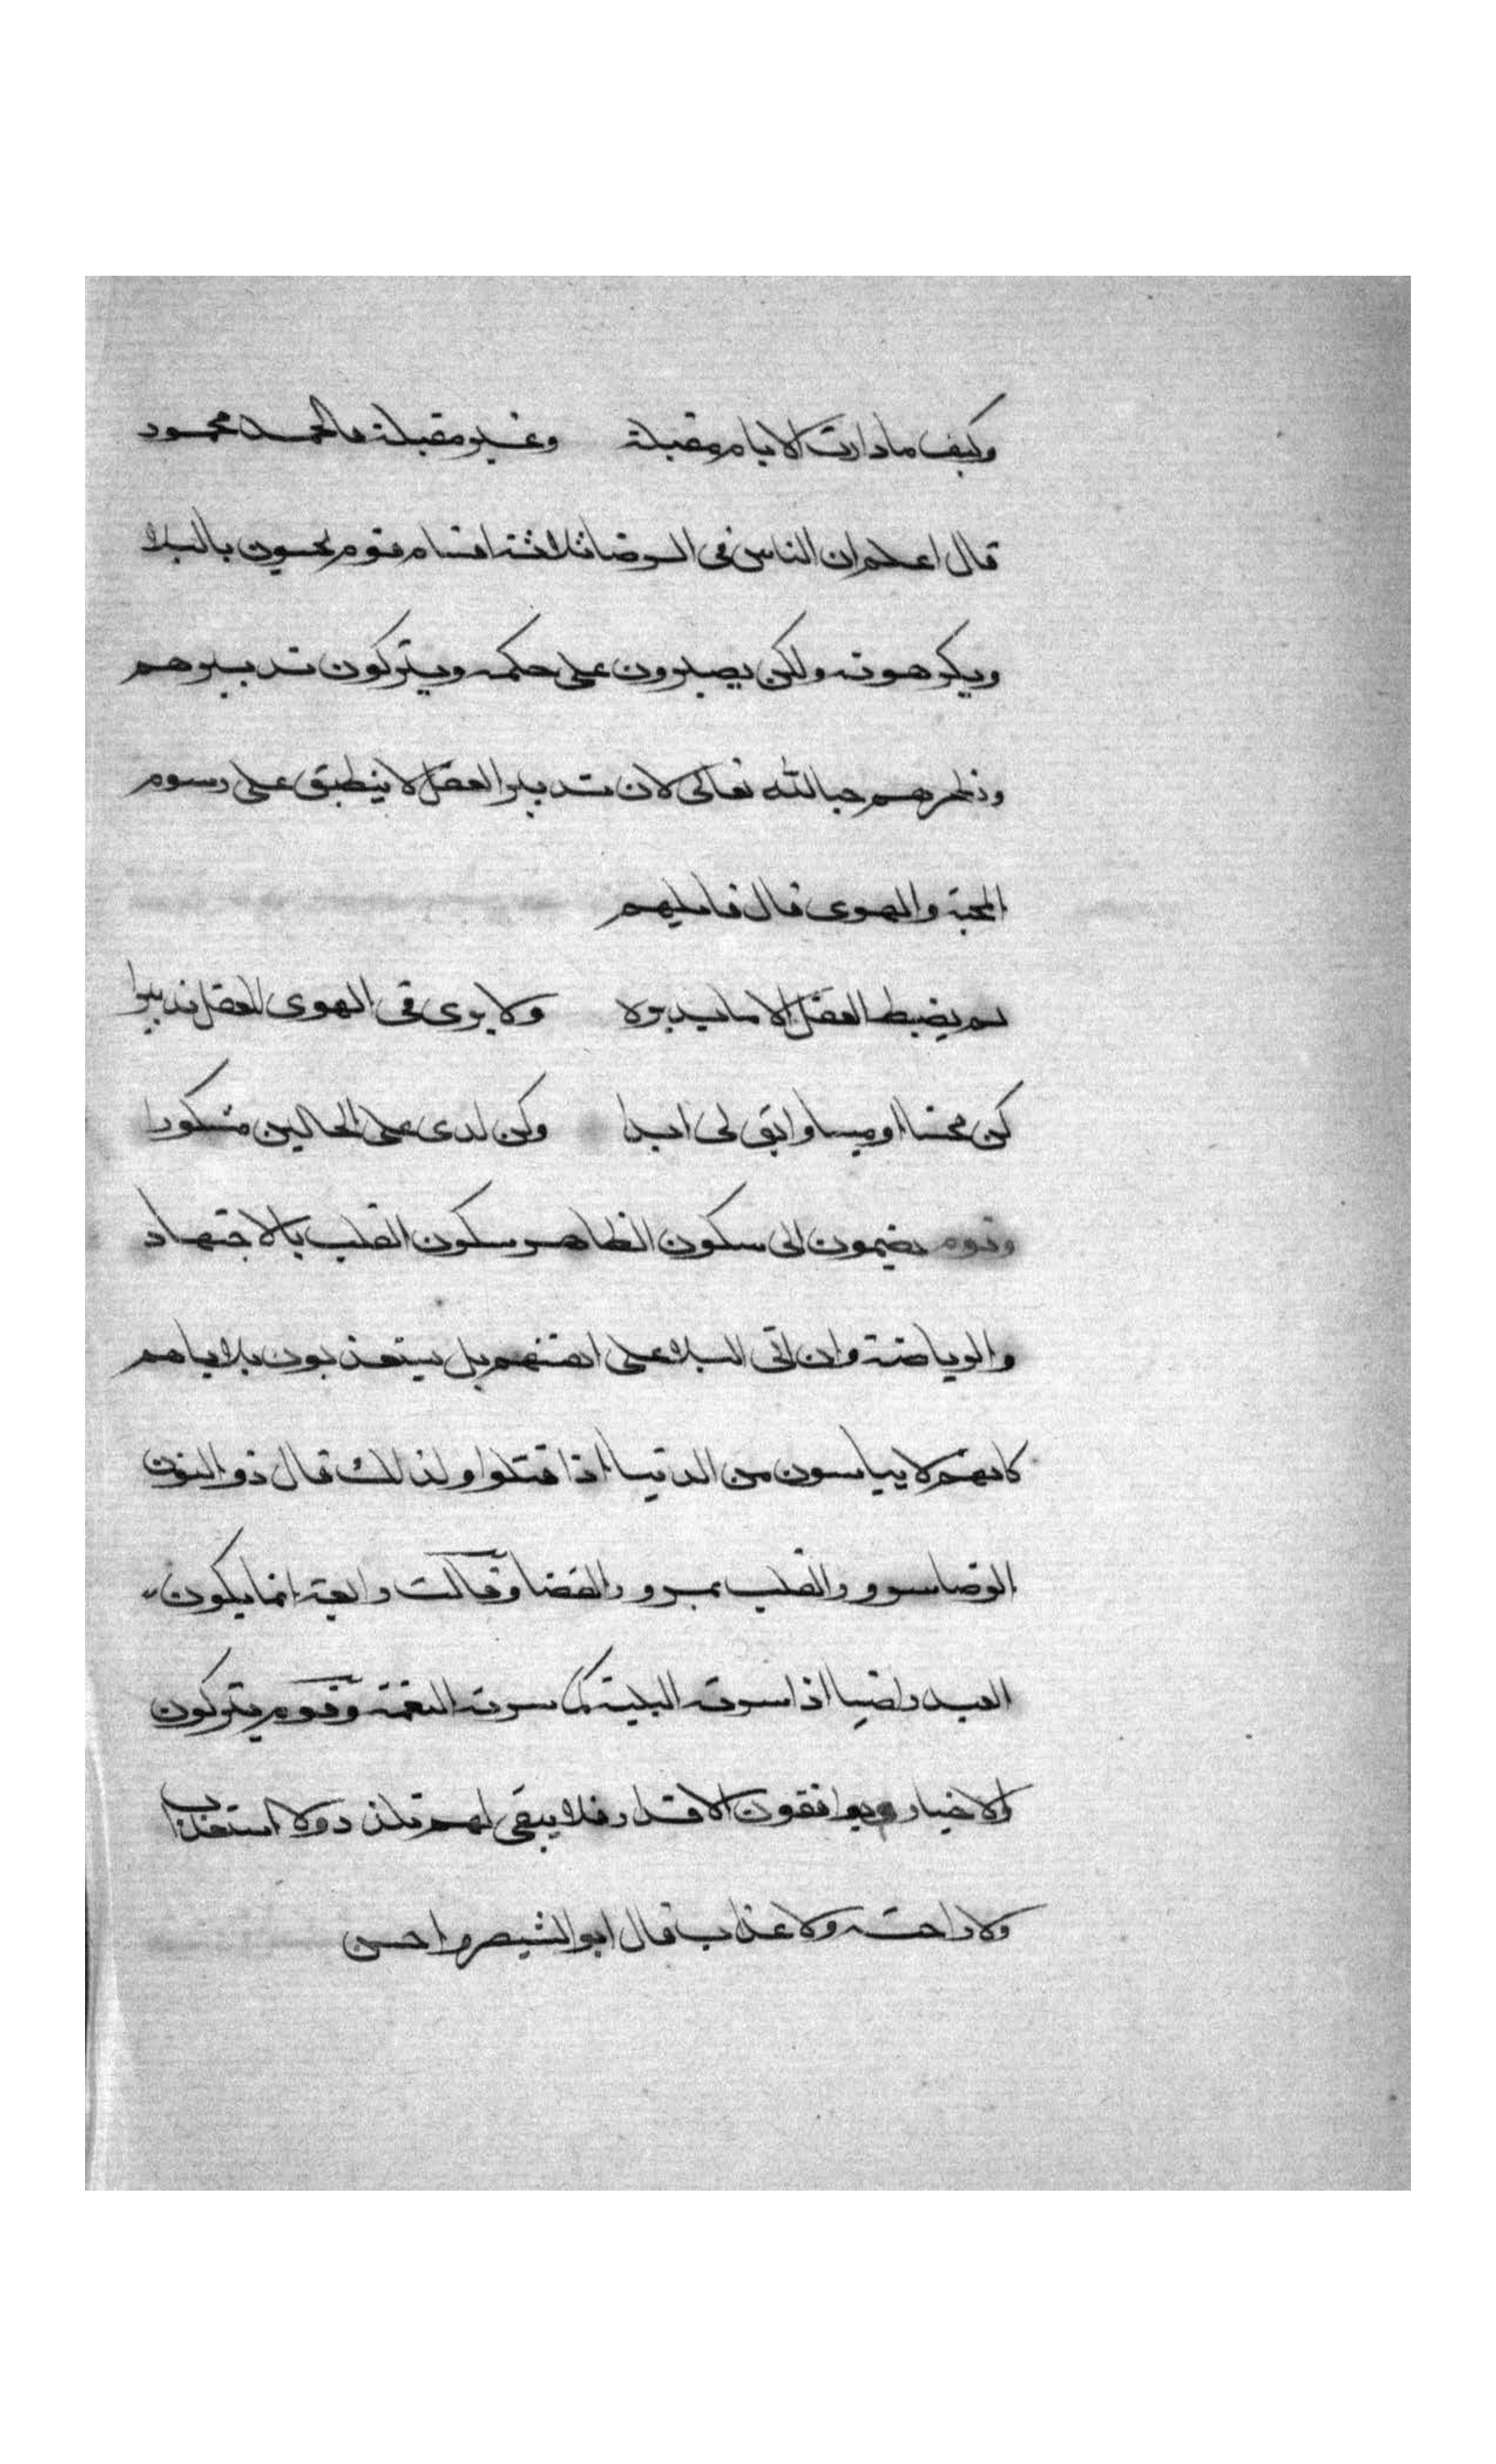 وكيف مادارت الايام مقبلة وغير مقبلة فالحمد محمود
قال اعلم ان الناس فى الرضا ثلاثة اقسام قوم يحسون بالبلا
ويكرهونه ولكن يصبرون على حكمه ويتركون تدبيرهم
ونظرهم حبا لله تعالى لان تدبير العقل لا ينطبق على رسوم
المحبة والهوى قال قايلهم
لم يضبط العقل الا ما يدبره ولا يرى فى الهوى للعقل تدبيرا
كن محسنا او ميسا وابق لى ابدا وكن لدى على الحالين مشكورا
وقوم يضمون الى سكون الظاهر سكون القلب بالاجتهاد
والرياضة وان اتى البلا على انفسهم بل يستعذبون بلاياهم
كانهم لا يياسون من الدنيا اذا قتلوا ولذلك قال ذو النون
الرضا سرور القلب بمرور القضا وقالت رابعة انما يكون
العبد راضيا اذا سرته البلية كما سرته النعمة وقوم يتركون
الاختيار ويوافقون الاقدار فلا يبقى لهم تلذذ ولا استعذاب
ولا راحة ولا عذاب قال ابو الشيص واحسن